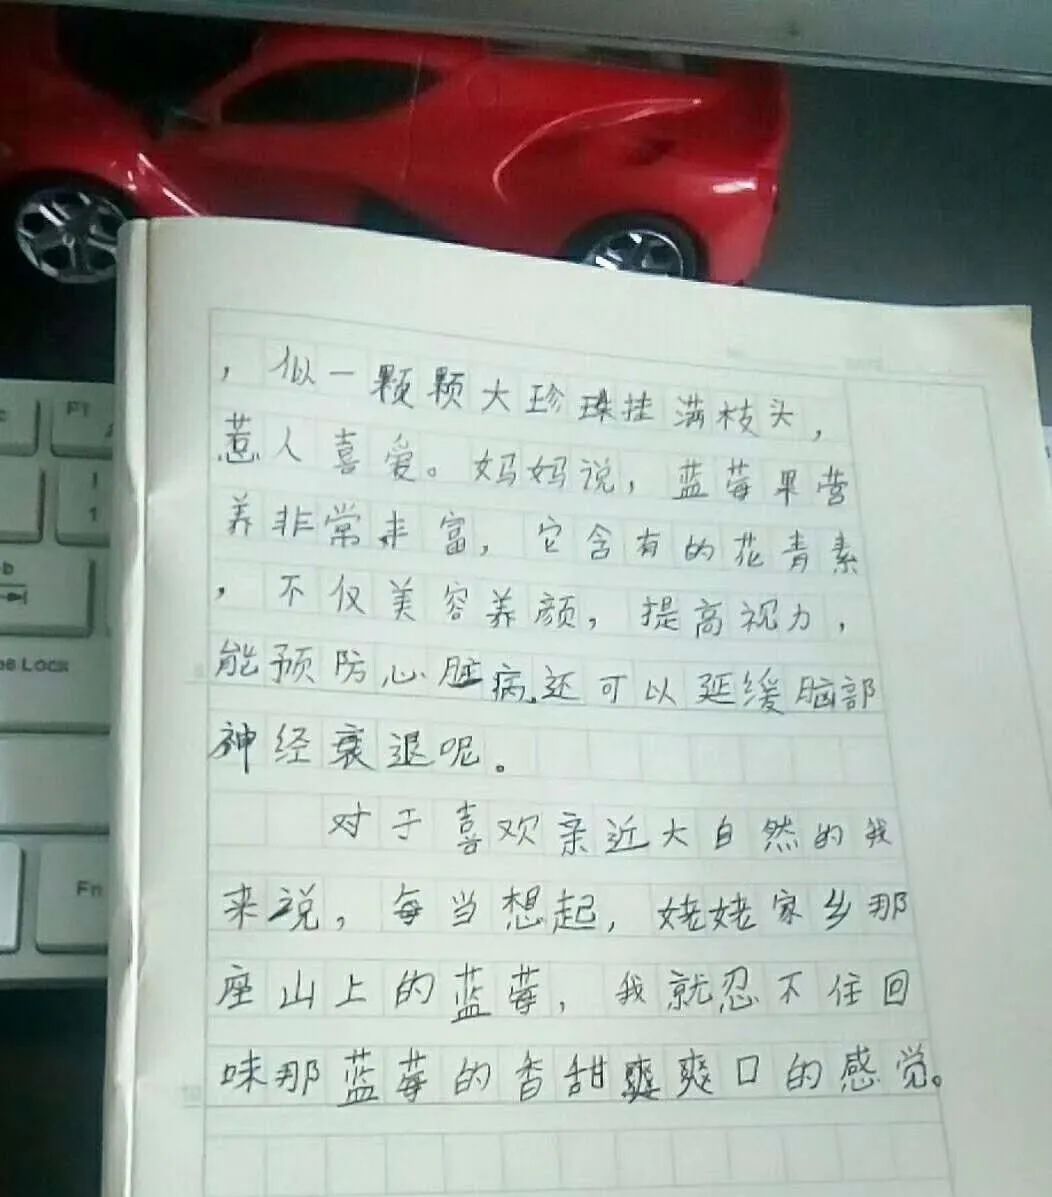 ，似一颗颗大珍珠挂满枝头，
惹人喜爱。妈妈说，蓝莓果营
养非常丰富，它含有的花青素
，不仅美容养颜，提高视力，
能预防心脏病,还可以延缓脑部
神经衰退呢。
对于喜欢亲近大自然的我
来说，每当想起，姥姥家乡那
座山上的蓝莓，我就忍不住回
味那蓝莓的香甜爽爽口的感觉。
F1
!
1
Lock
Fn